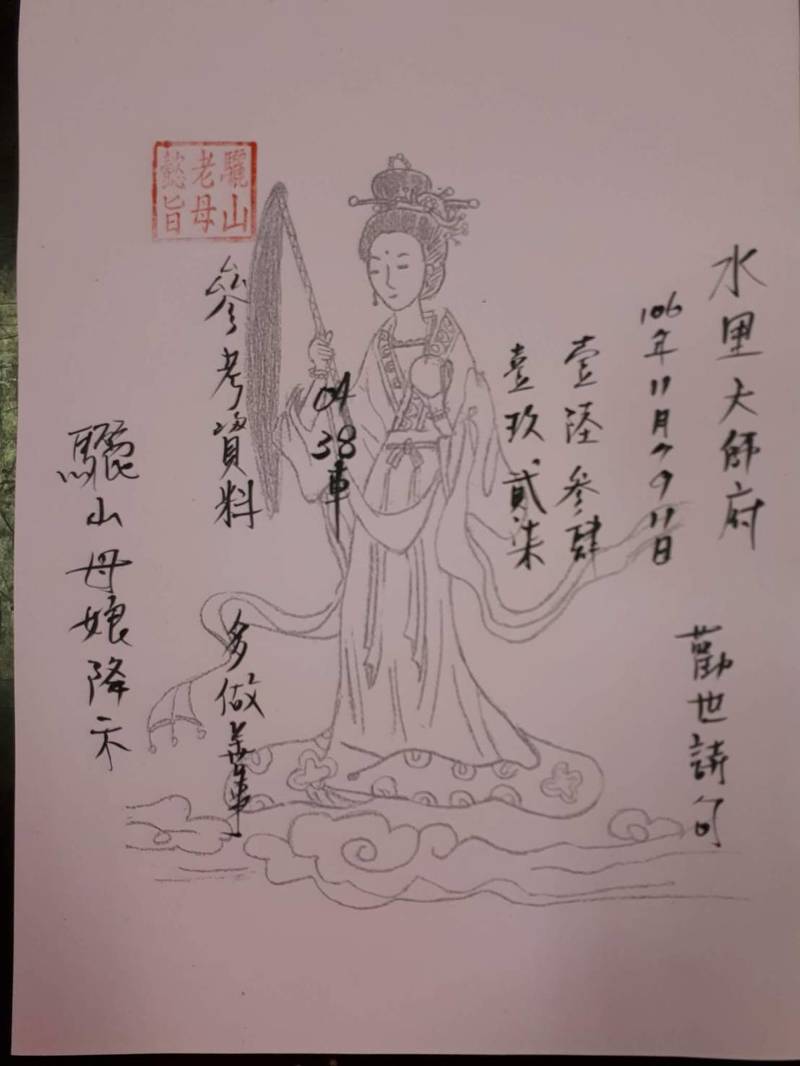 水里大師府
勸世詩句
106年11月7 9 11日
壹陸參肆
壹玖貳柒
04
38車
驪山
老母
懿旨
參考資料
多做善事
驪山母娘降示